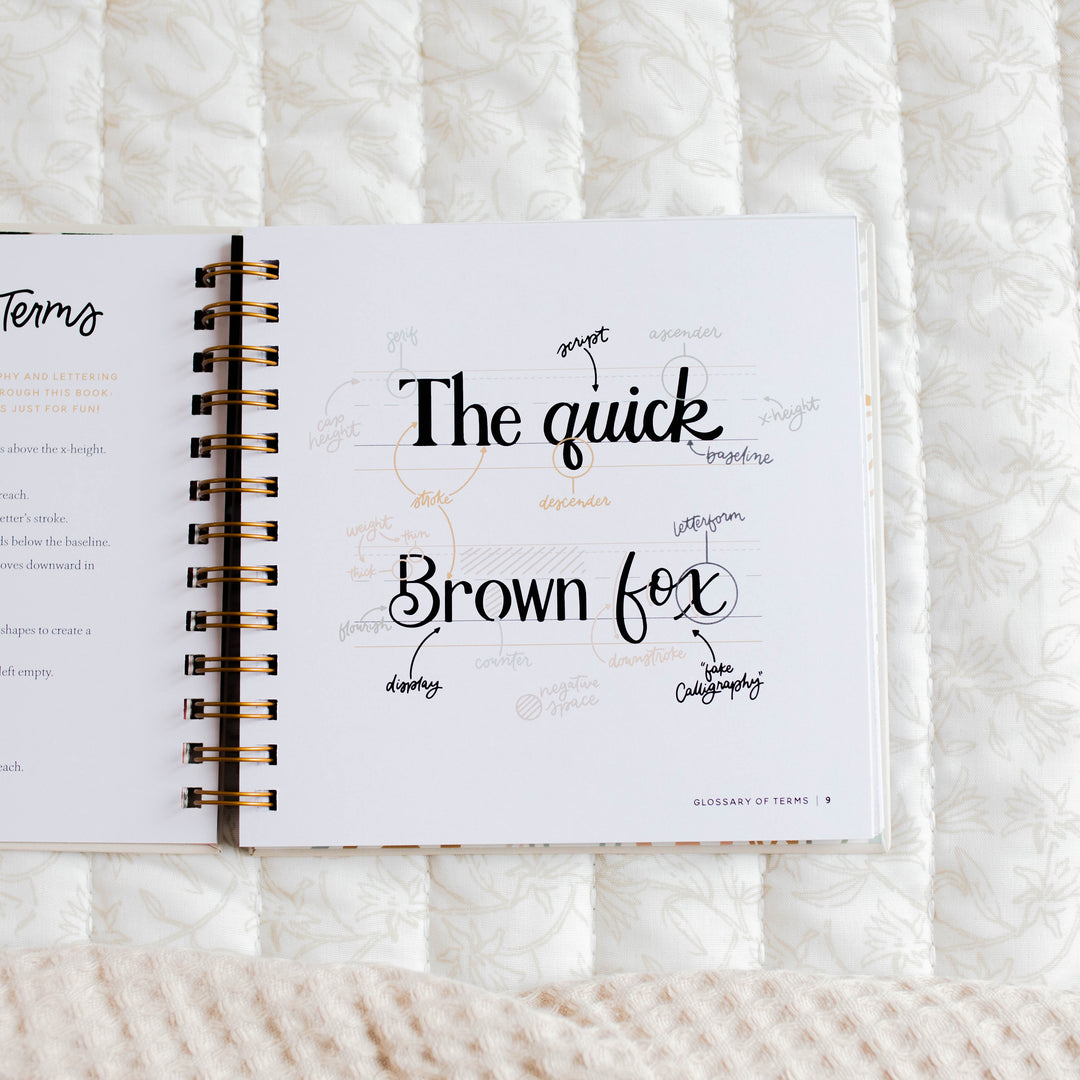 Terms
PHY AND LETTERING
ROUGH THIS BOOK.
S JUST FOR FUN!
s above the x-height.
reach.
etter's stroke.
ds below the baseline.
oves downward in
shapes to create a
left empty.
each.
serif
script
ascender
The quick
cap
height
x-height
baseline
stroke
descender
weight
thin
thick
letterform
Brown fox
flourish
counter
downstroke
display
"fake
Calligraphy"
negative
space
GLOSSARY OF TERMS | 9